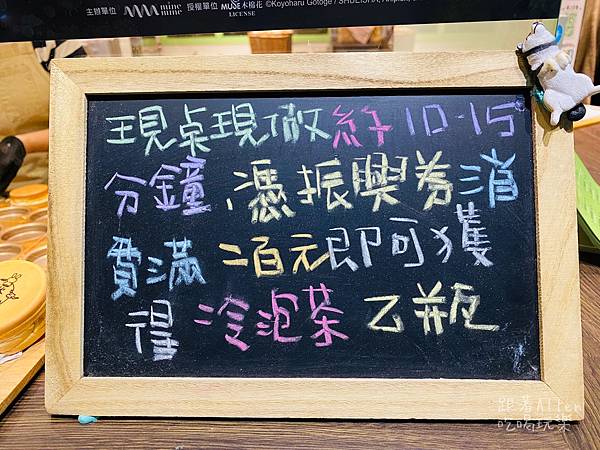 主辦單位 mine mine 授權單位 MUSE木棉花 ©Koyoharu Gotoge / SHUEISHA, Aniplex
LICENSE
現桌現做約10-15
分鐘 憑振興券消
費滿二百元即可獲
得 冷泡茶乙瓶
跟著Allen
吃喝玩樂